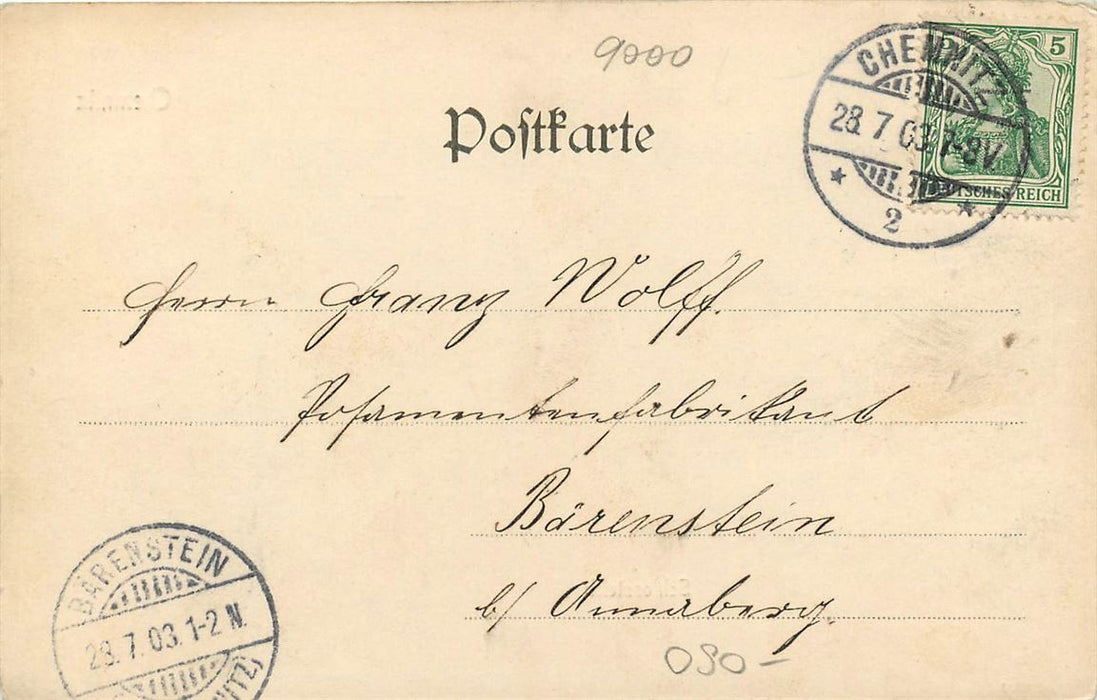 9000
Poſtkarte
CHEMNITZ
28.7.03.7-8V
2
5
DEUTSCHES REICH
Herrn Franz Wolff.
Posamentenfabrikant
Bärenstein
b/ Annaberg.
BÄRENSTEIN
28.7.03.1-2 N.
090-